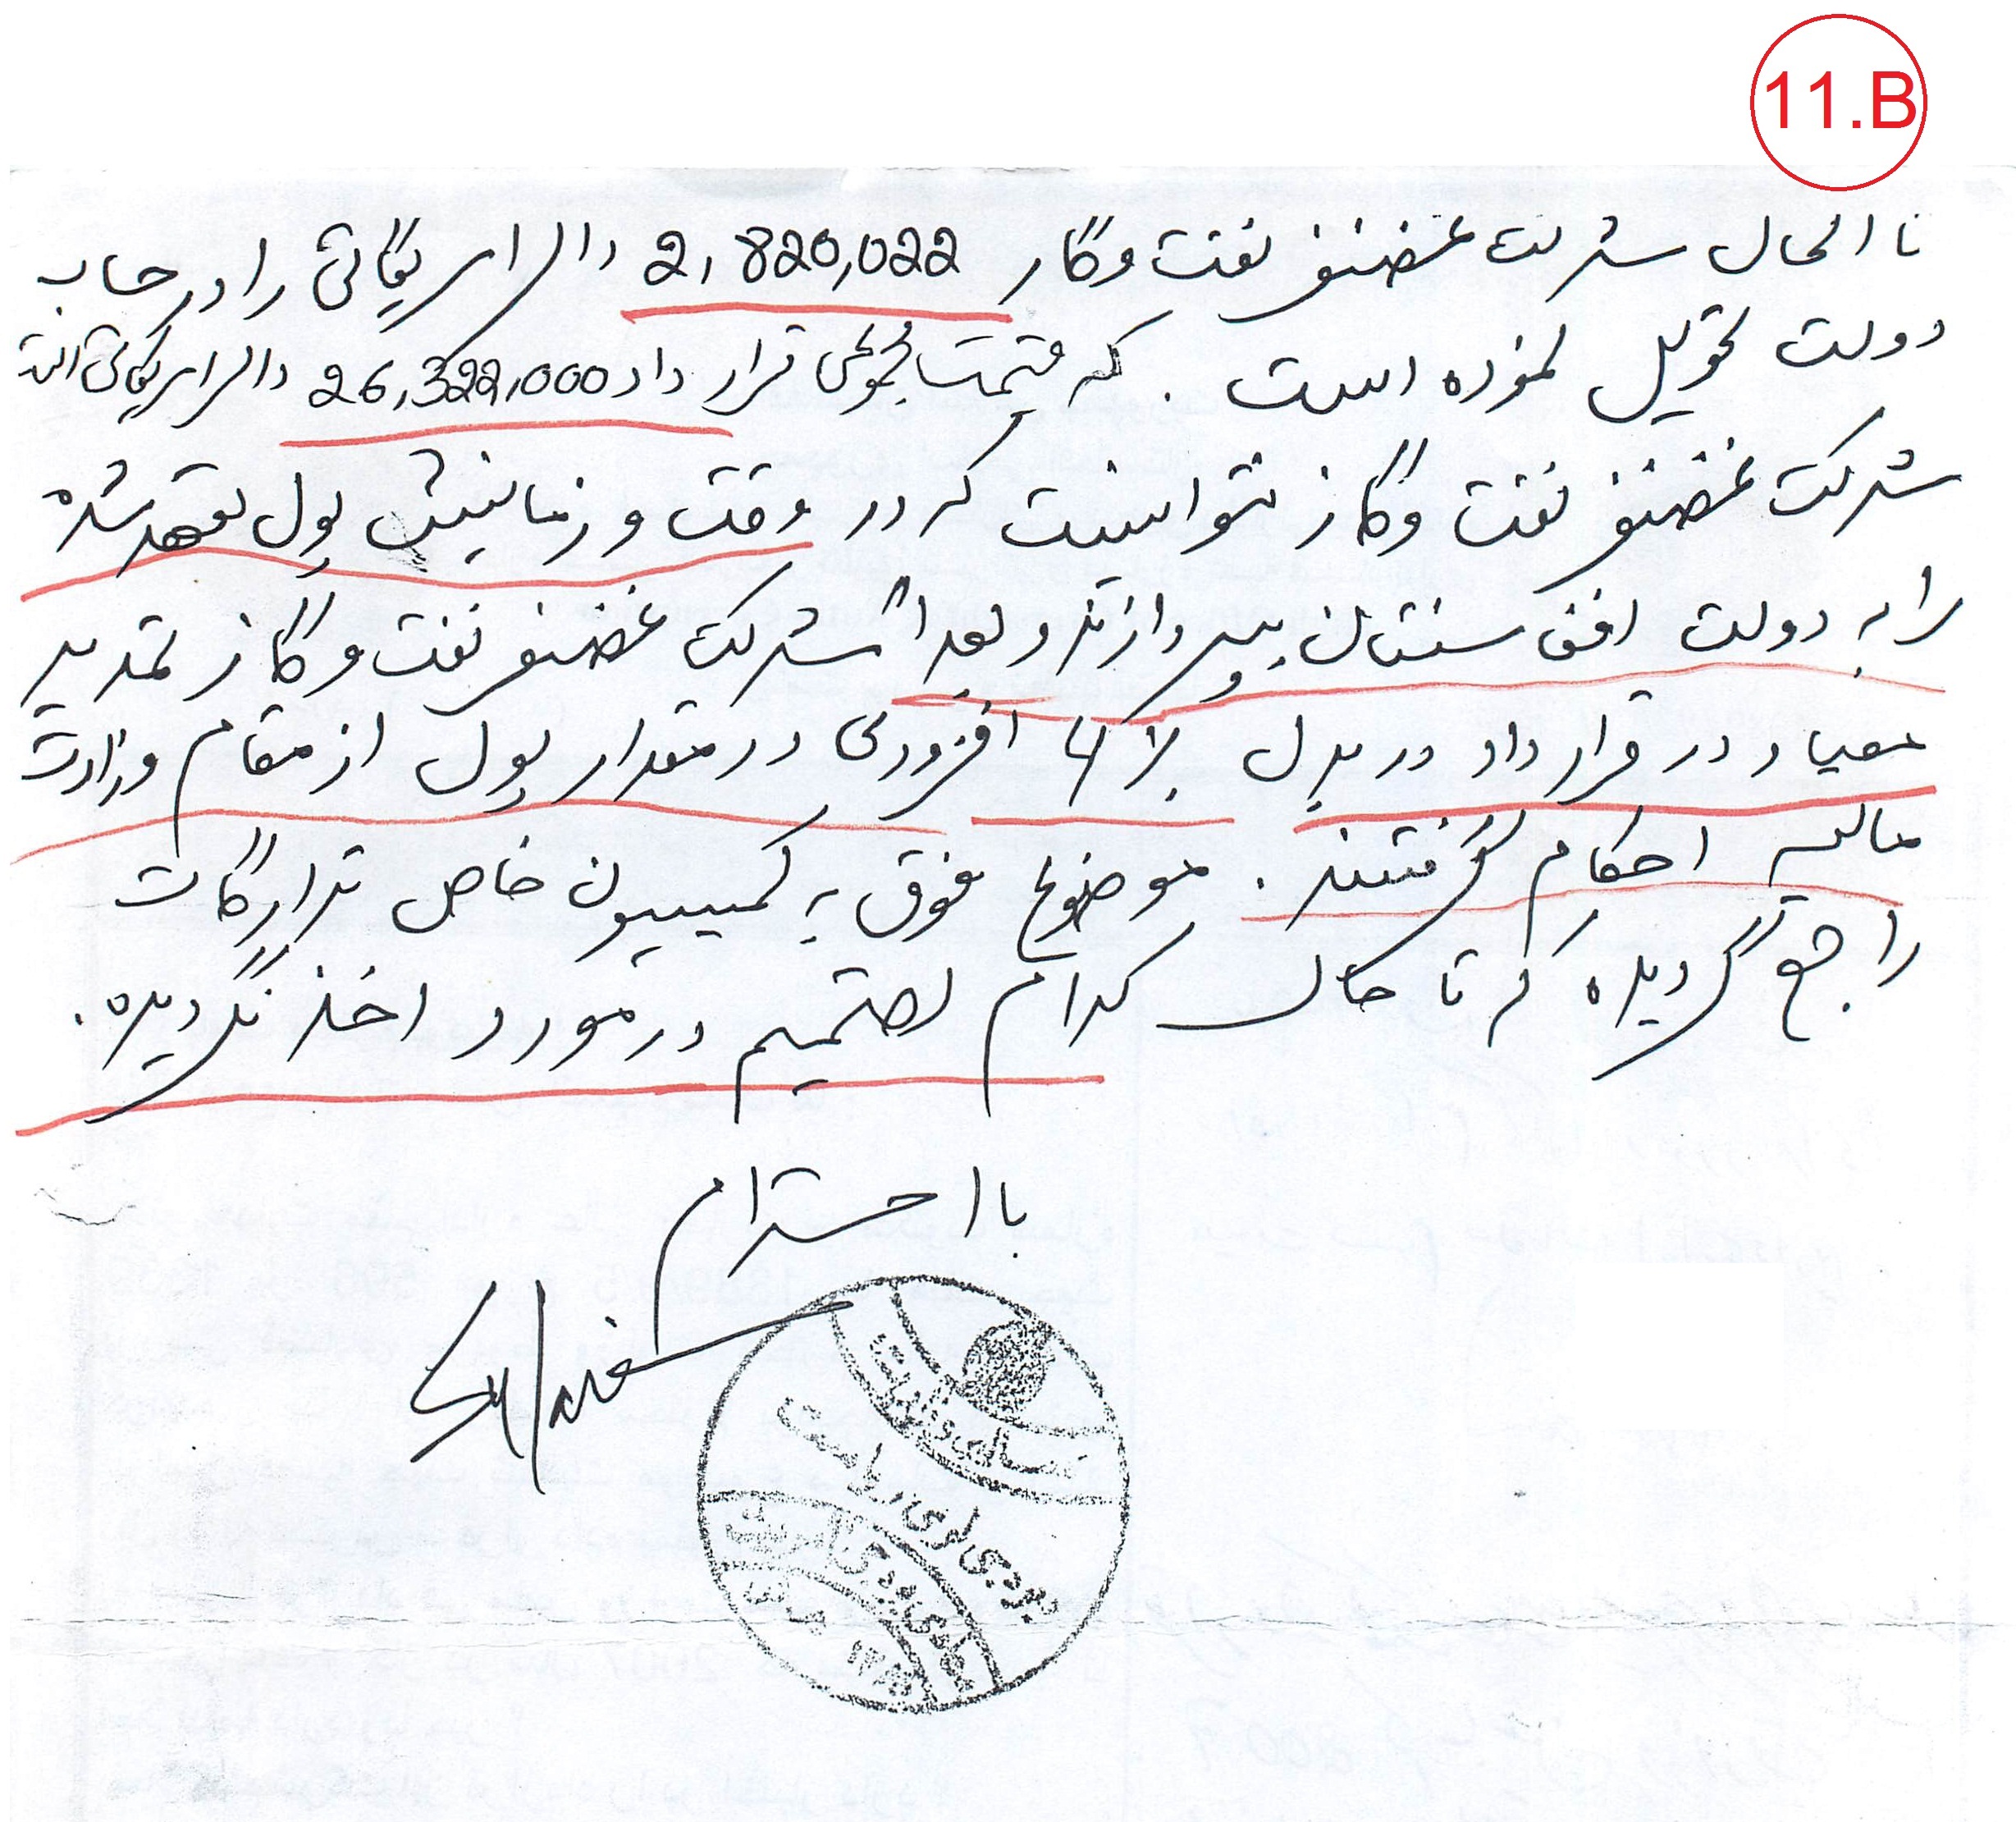 11.B
تا الحال شرکت غضنفر نفت و گاز 2,820,022 دالر امریکائی را در حساب
دولت تحویل نموده است . که قیمت مجموعی قرار داد 26,322,000 دالر امریکائی است
شرکت غضنفر نفت و گاز نتوانست که در وقت و زمانیش پول تعهد شده
را به دولت افغانستان بپردازند و بعداً شرکت غضنفر نفت و گاز تمدید
میعاد در قرار داد در بدل افزودی در مقدار پول از مقام وزارت
مالیه احکام گرفتند . موضوع فوق به کمیسیون خاص تدارکات
راجع گردیده که تا حال کدام تصمیم در مورد اخذ نگردیده .
با احترام